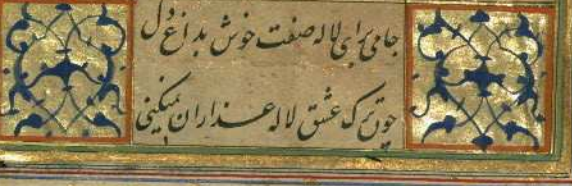 جامی برای لاله صفت خوش بداغ دل
چون ترک عشق لاله عذاران نمیکنی